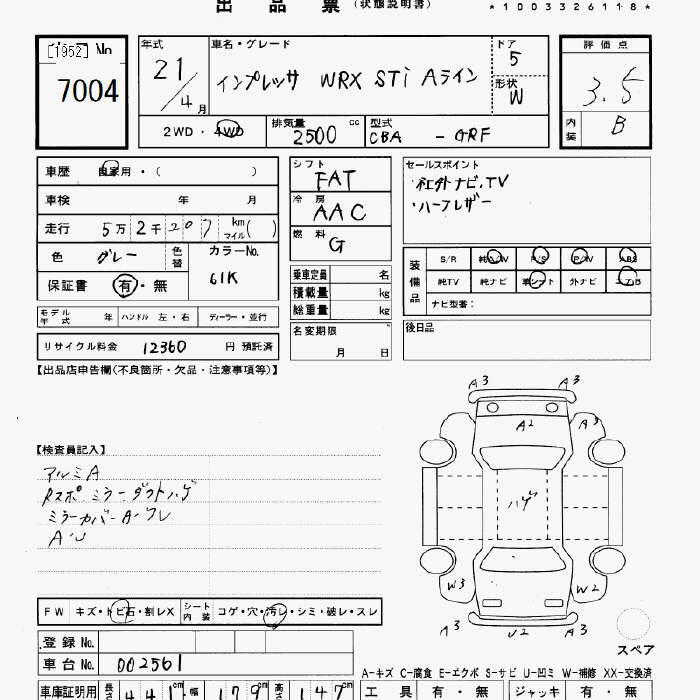 出品票(状態説明書)
*1003326118*
[1952] No
7004
年式
21/4月
車名・グレード
インプレッサ WRX STi Aライン
ドア
5
形状
W
2WD・4WD
排気量 2500 cc
型式 CBA - GRF
評価点
3.5
内装 B
車歴 自家用・( )
車検 年 月
走行 5万2千207 km マイル( )
色 グレー 色替
カラーNo.
61K
保証書 有・無
シフト FAT
冷房 AAC
燃料 G
乗車定員 名
積載量 kg
総重量 kg
名変期限
月 日
セールスポイント
社外ナビ.TV
・ハーフレザー
装備品
S/R 純A/W P/S P/W ABS
純TV 純ナビ 革シート 外ナビ エアB
ナビ型番:
後日品
モデル年式 年 ハンドル 左・右 ディーラー・並行
リサイクル料金 12360 円 預託済
【出品店申告欄(不良箇所・欠品・注意事項等)】
【検査員記入】
アルミA
Rスポ ミラーダクトハゲ
ミラーカバーA・ワレ
A・U
A3 A3
A2 A3
ハゲ
W3 W2
U2 A3
スペア
FW キズ・トビ石・割レX シート内装 コゲ・穴・汚レ・シミ・破レ・スレ
登録No.
車台No. 002561
A-キズ C-腐食 E-エクボ S-サビ U-凹ミ W-補修 XX-交換済
車庫証明用 長さ 441cm 幅 179cm 高さ 147cm
工具 有・無 ジャッキ 有・無